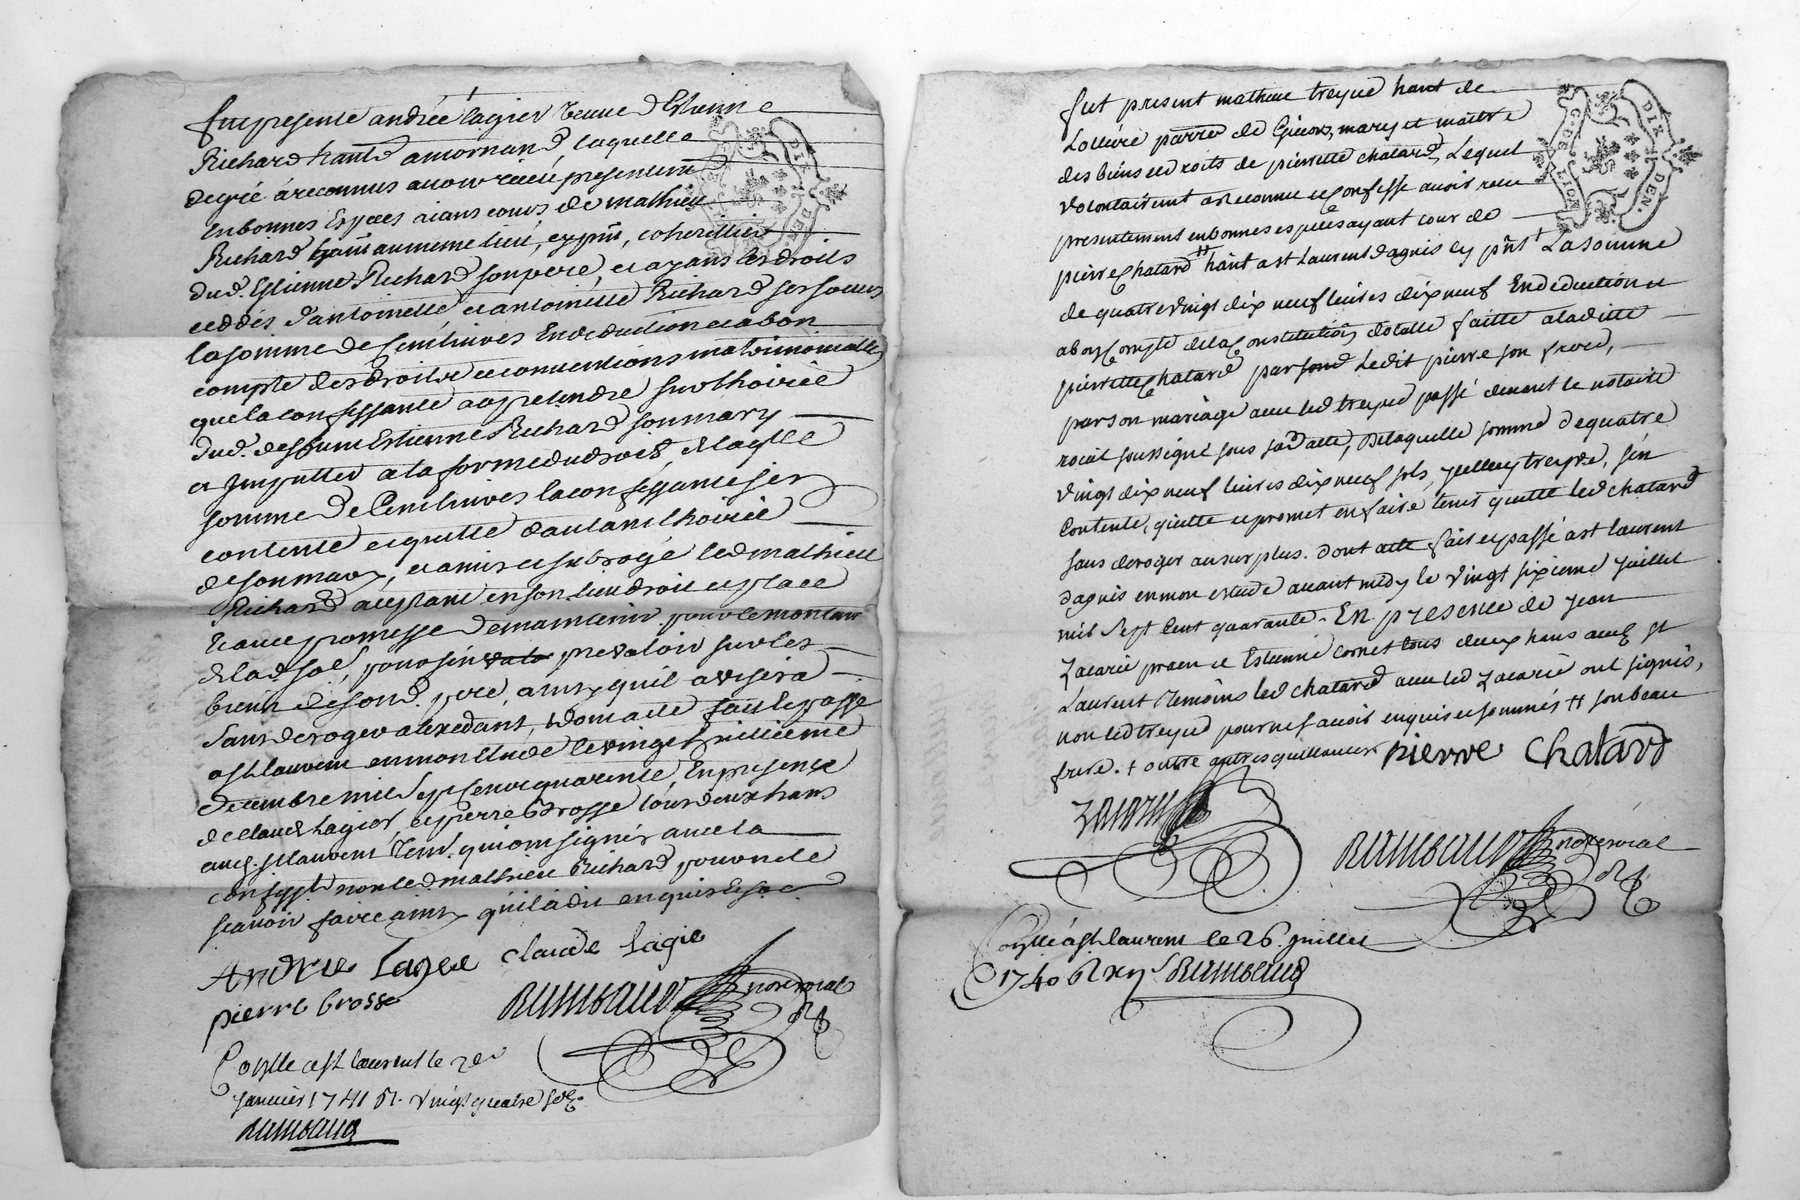 fut presente andrée lagier veuve d'Estienne
Richard hante a mornand, laquelle
de gré a reconnus avoir receu presentemt
en bonnes Espces aians cours de mathieu
Richard hant au meme lieu, cy pnt, coheritier
dud. Estienne Richard son pere, et ayans les droits
d'antoinette et antoinette Richard ses soeurs
la somme de Cent livres En deduction et a bon
compte des droits et conventions matrimonialles
que la confessante a a pretendre sur l'hoirie
dud. deffunt Estienne Richard son mary
et Imputter a la forme du droit, de laqlle
somme de Cent livres la confessante s'est
contente et quitte d'autant l'hoirie
de son mary, et a mis et subrogé led mathieu
Richard aceptant en son lieu droit et place
et avec promesse de maintenir pour le montant
de lad. soe, pour s'en prevaloir sur les
biens de sond. pere, ainsy qu'il avisera
sans deroger a l'exedant, dont acte fait et passé
a st laurent en mon Etude le vingt huitieme
decembre mil sept cent quarente, En presence
de claude Lagier, et pierre Brosse tous deux hans
aud. st laurent Tems. qui ont signés avec la
confesste non led mathieu Richard pour ne le
scavoir faire ainsy qu'il a dit enquis et so
Andrée Lagee claude Lagie
pierre brosse
Rimbaud not royal
Conlle a st laurent le
janvier 1741 R. vingt quatre sols
Rimbaud
fut present mathieu treyve hant de
Lolliere parroe de Givors, mary et maitre
des biens et droits de pierrette chatard, Lequel
volontairemt a reconnu et Confessé avoir receu
presentement en bonnes especes ayant cour de
pierre Chatard ++ hant a st Laurent d'agnis cy pnt + La somme
de quatre vingt dix neuf livres dix neuf En deduction et
a bon Compte de la Constitution dotalle faitte a ladite
pierrette Chatard par sond Ledit pierre son frere,
par son mariage avec led treyve passé devant le notaire
roial soussigné sous sa datte, De laquelle somme de quatre
vingt dix neuf livres dix neuf sols, icelluy treyve, s'en
Contente, quitte et promet en faire tenir quitte led chatard
sans deroger au surplus. dont acte fait et passé a st laurent
d'agnis en mon etude avant midy le vingt sixieme juillet
mil sept Cent quarante. En presence de jean
Zacarie pracn et Estienne Cornet tous deux hans aud st
Laurent Temoins led chatard avec led Zacarie ont signés,
non led treyve pour ne scavoir enquis et sommés ++ son beau
frere. + outre autres quittances pierre Chatard
Zacarie
Rimbaud not royal
Conlle a st laurent le 26 juillet
1740 R xij s Rimbaud
G. DE LION
DIX DEN.
DIX DEN